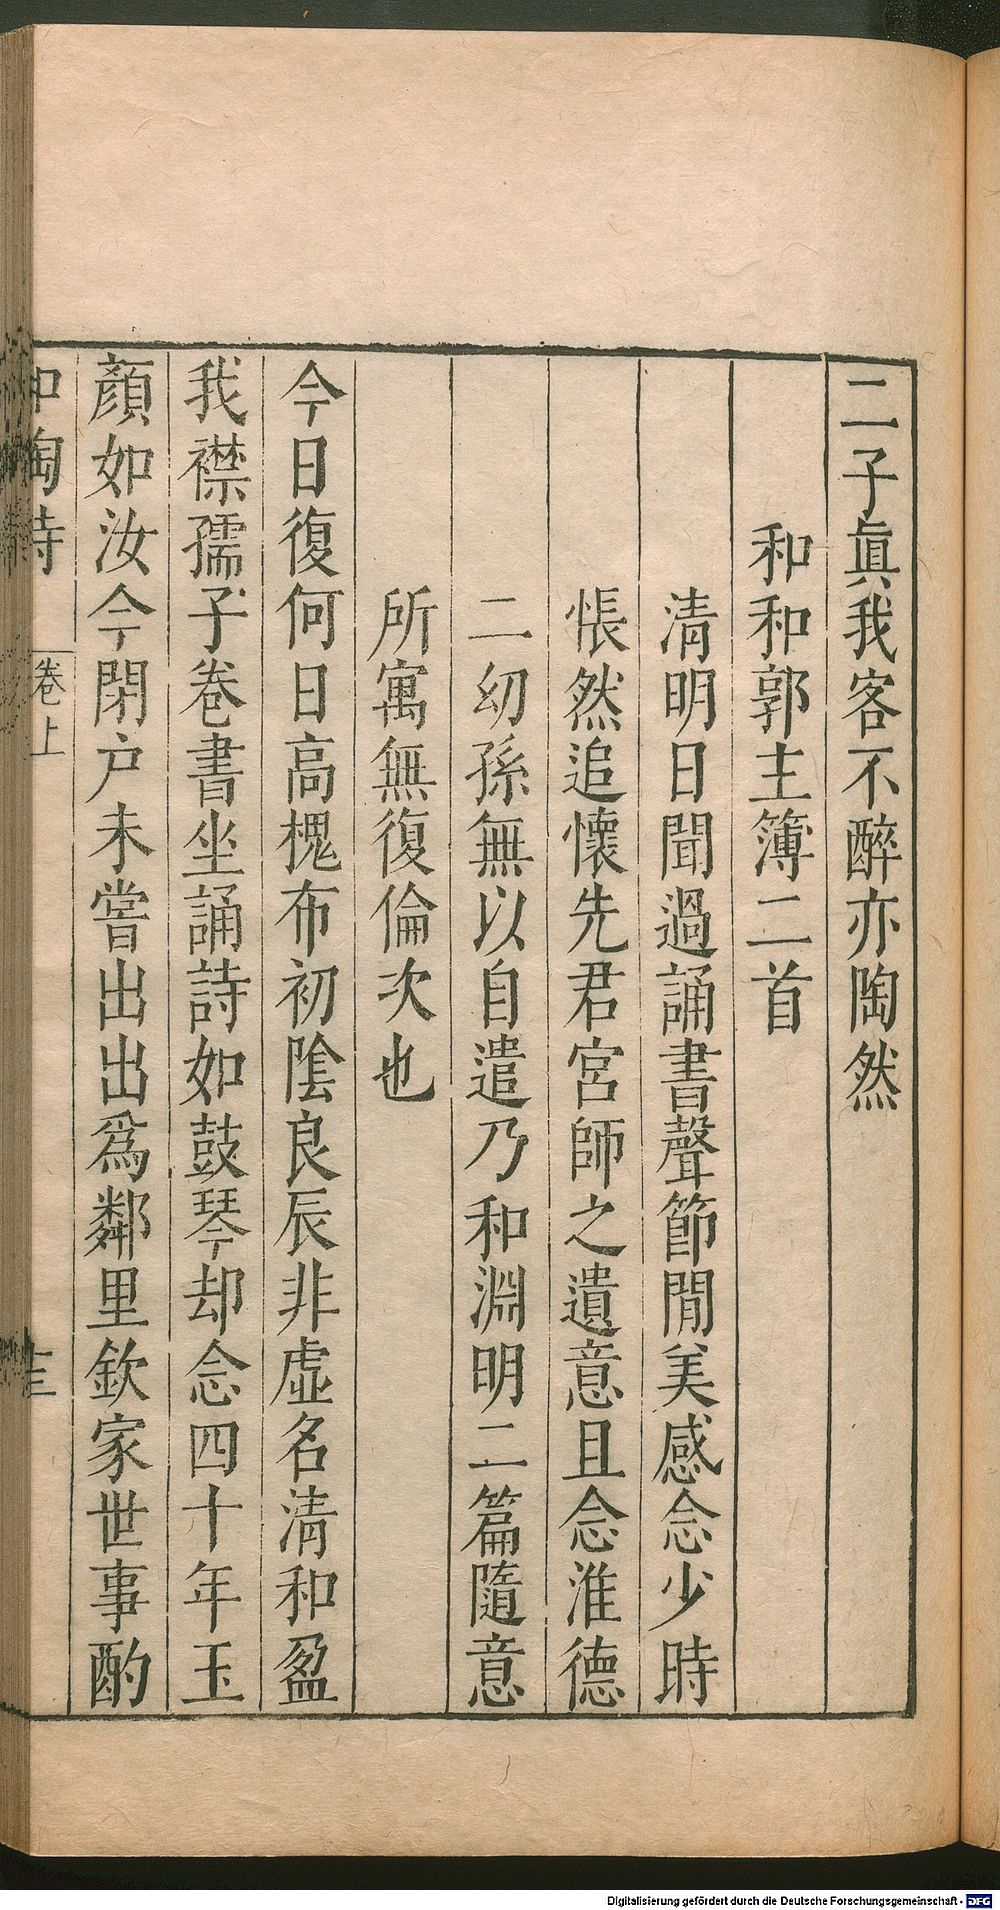 二子眞我客不醉亦陶然
和和郭主簿二首
清明日聞過誦書聲節閒美感念少時
悵然追懷先君宮師之遺意且念淮德
二幼孫無以自遣乃和淵明二篇隨意
所寓無復倫次也
今日復何日高槐布初陰良辰非虛名清和盈
我襟孺子卷書坐誦詩如鼓琴却念四十年玉
顏如汝今閉戸未嘗出出爲鄰里欽家世事酌
和陶詩 卷上
Digitalisierung gefördert durch die Deutsche Forschungsgemeinschaft - DFG